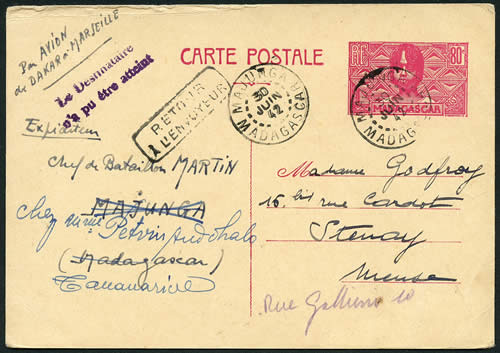 Par AVION
de DAKAR à MARSEILLE
Le Destinataire
n'a pu être atteint
CARTE POSTALE
RF
80c
MADAGASCAR
RETOUR
A L'ENVOYEUR
MAJUNGA
30
JUIN
42
MADAGASCAR
30
JUIN
MADAGASCAR
Expéditeur
Chef de Bataillon MARTIN
MAJUNGA
chez mme
(Madagascar)
Tananarive
Madame Godfroy
16 bis rue Cardot
Stenay
Meuse
Rue Gallieni 10